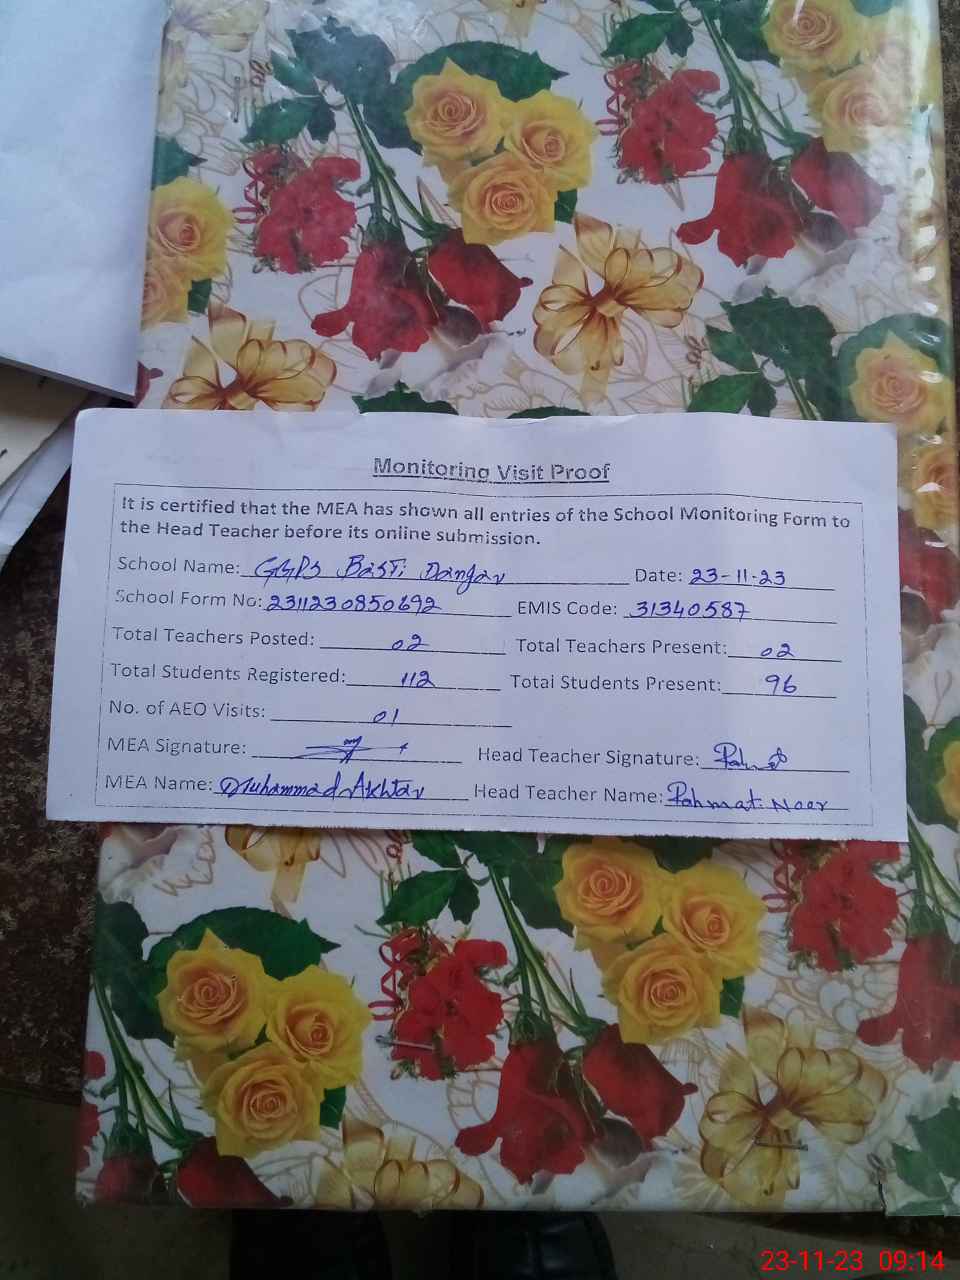 Monitoring Visit Proof
It is certified that the MEA has shown all entries of the School Monitoring Form to
the Head Teacher before its online submission.
School Name: GGPS Basti Dangar Date: 23-11-23
School Form No: 2311230850692 EMIS Code: 31340587
Total Teachers Posted: 02 Total Teachers Present: 02
Total Students Registered: 112 Total Students Present: 96
No. of AEO Visits: 01
MEA Signature: Head Teacher Signature:
MEA Name: Muhammad Akhtar Head Teacher Name: Rahmat Noor
23-11-23 09:14